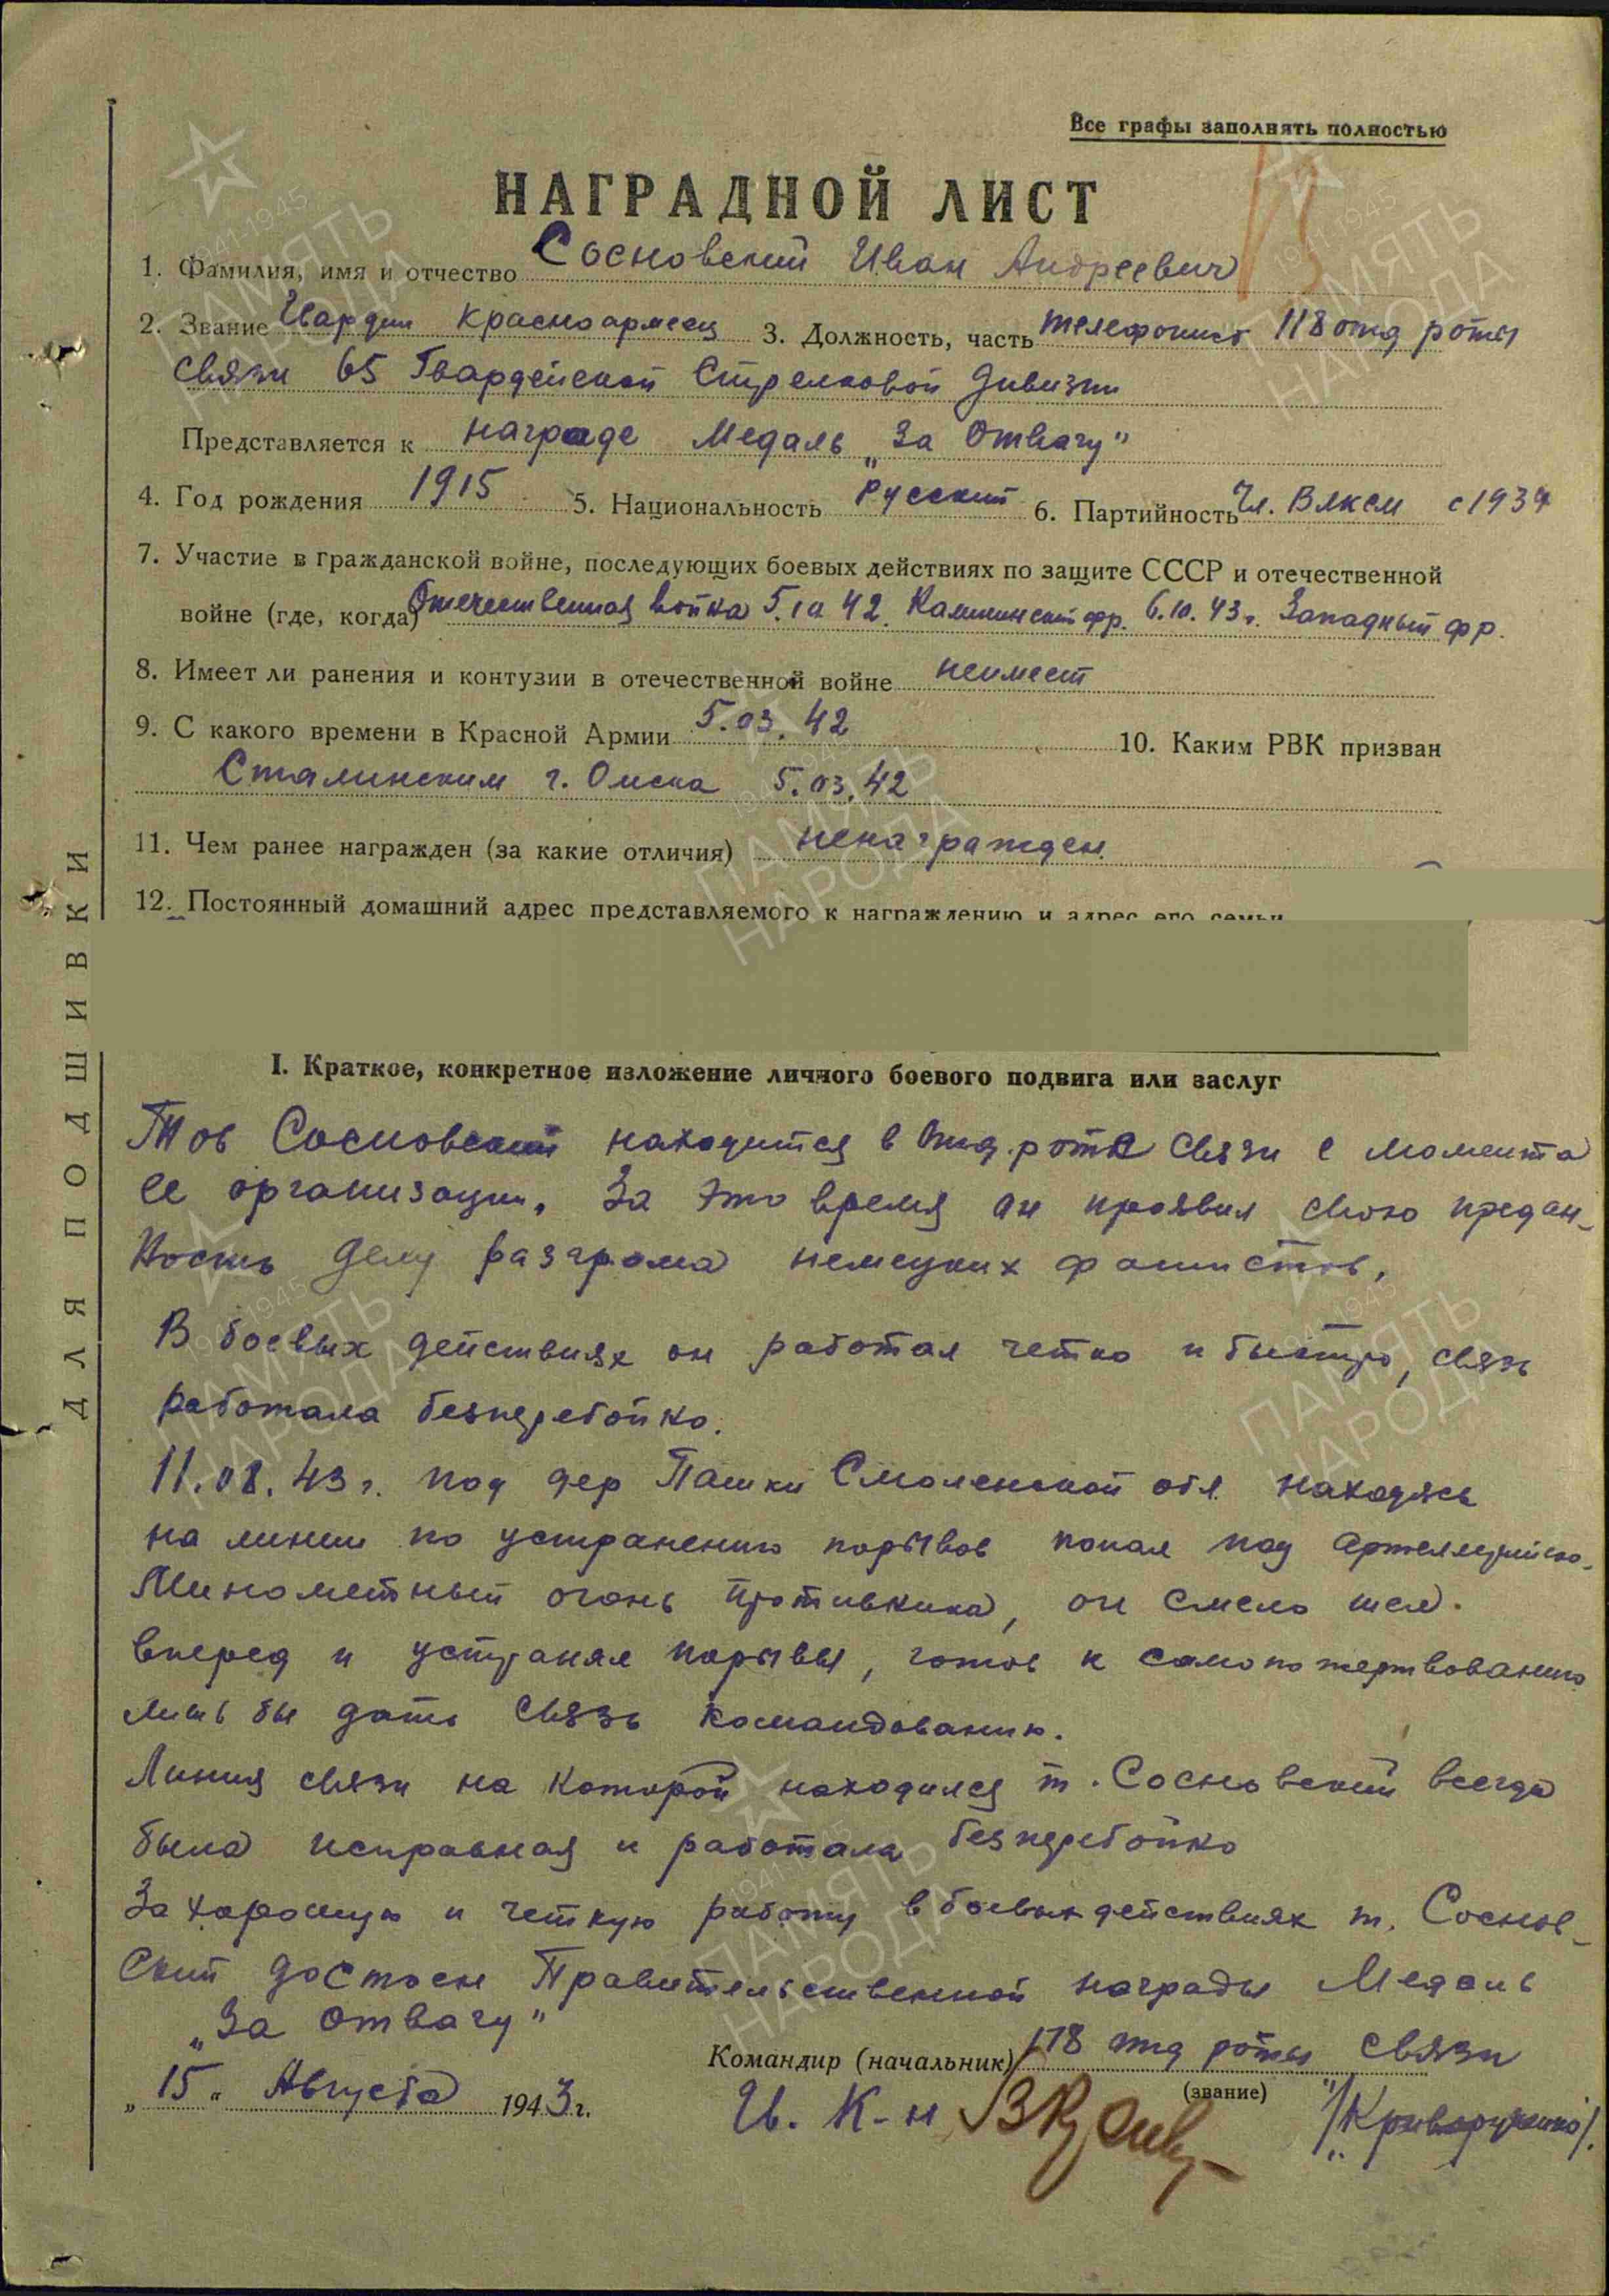 Все графы заполнять полностью
НАГРАДНОЙ ЛИСТ
1. Фамилия, имя и отчество Сосновский Иван Андреевич
2. Звание Гвардии красноармеец 3. Должность, часть телефонист 118 отд роты
связи 65 Гвардейской Стрелковой дивизии
Представляется к награде Медаль „За Отвагу"
4. Год рождения 1915 5. Национальность Русский 6. Партийность Чл. Влксм с 1934
7. Участие в гражданской войне, последующих боевых действиях по защите СССР и отечественной
войне (где, когда) Отечественная война 5.10 42. Калининский фр. 6.10.43 г. Западный фр.
8. Имеет ли ранения и контузии в отечественной войне неимеет
9. С какого времени в Красной Армии 5.03.42 10. Каким РВК призван
Сталинским г. Омска 5.03.42
11. Чем ранее награжден (за какие отличия) ненагражден.
12. Постоянный домашний адрес представляемого к награждению и адрес его семьи
ДЛЯ ПОДШИВКИ
I. Краткое, конкретное изложение личного боевого подвига или заслуг
Тов Сосновский находится в отд. роте связи с момента
ее организации. За это время он проявил свою предан-
ность делу разгрома немецких фашистов.
В боевых действиях он работал четко и быстро, связь
работала безперебойно.
11.08.43 г. под дер Пашки Смоленской обл. находясь
на линии по устранению порывов попал под артеллерийско-
Минометный огонь противника, он смело шел.
вперед и устранял порывы, готов к самопожертвованию
лишь бы дать связь командованию.
Линия связи на которой находился т. Сосновский всегда
была исправная и работала безперебойно
За хорошую и четкую работу в боевых действиях т. Соснов-
ский достоен Правительственной награды Медаль
„За отвагу"
Командир (начальник) 118 отд роты связи
(звание)
„15" Августа 1943 г.
Гв. К-н /Криворученко/.
1941-1945
ПАМЯТЬ
НАРОДА